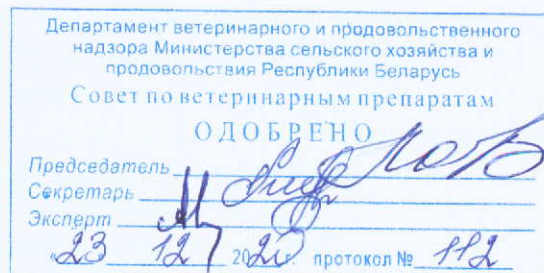 Департамент ветеринарного и продовольственного
надзора Министерства сельского хозяйства и
продовольствия Республики Беларусь
Совет по ветеринарным препаратам
ОДОБРЕНО
Председатель
Секретарь
Эксперт
«23 12 2020 г. протокол № 112